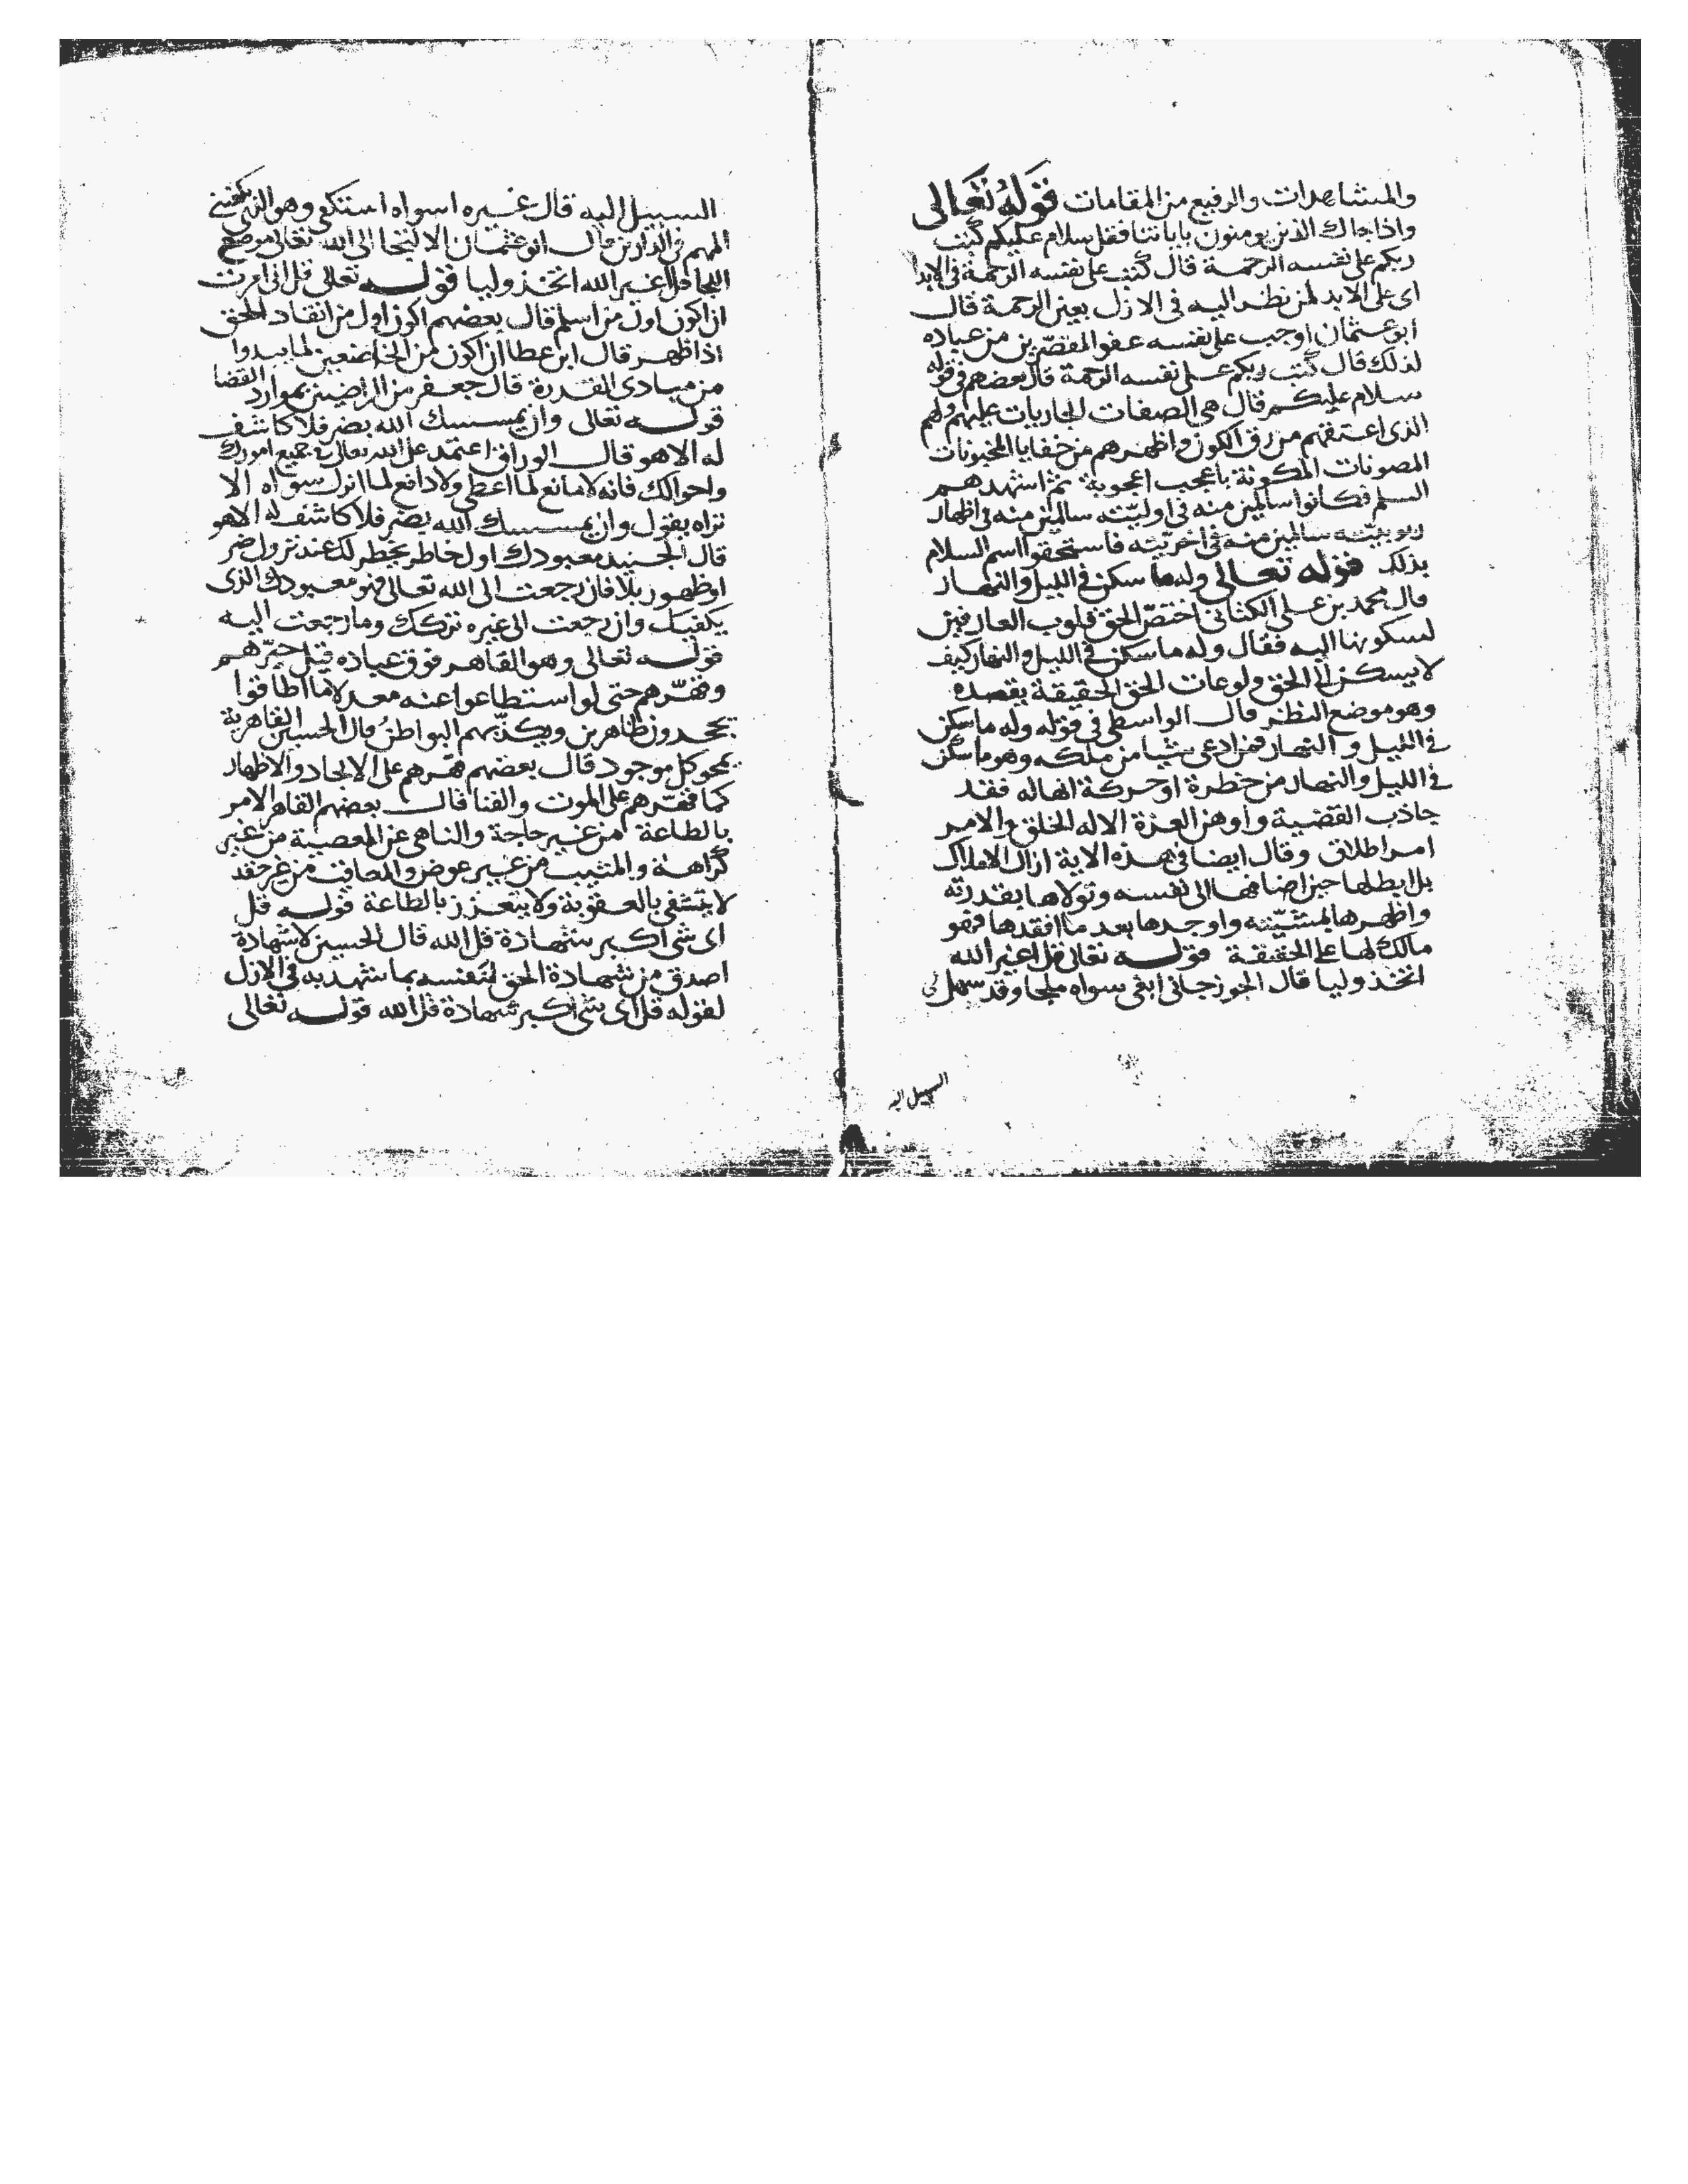 والمشاهدات والرفيع من المقامات قوله تعالى
واذا جاك الذين يومنون باياتنا فقل سلام عليكم كتب
ربكم على نفسه الرحمة قال كتب على نفسه الرحمة فى الابد
اى على الابد لمن نظر اليه فى الازل بعين الرحمة قال
ابو عثمان اوجب على نفسه عفو المقصّرين من عباده
لذلك قال كتب ربكم على نفسه الرحمة قال بعضهم فى قوله
سلام عليكم قال هى الصفات الجاريات عليهم ولهم
الذى اعتقهم من رق الكون واظهرهم من خفايا المخبونات
المصونات المكونة باعجب اعجوبة ثم اشهدهم
السلم فكانوا سالمين منه فى اوليّته سالمين منه فى اظهار
ربوبيّته سالمين منه فى اخريّته فاستحقوا اسم السلام
بذلك قوله تعالى وله ما سكن فى الليل والنهار
قال محمد بن على الكتانى اختصّ الحق قلوب العارفين
لسكونها اليه فقال وله ما سكن فى الليل والنهار كيف
لا يسكن الى الحق ولوعات الحق الحقيقة بقصده
وهو موضع النظر قال الواسطى فى قوله وله ما سكن
فى الليل والنهار فمن ادعى شيا من ملكه وهو ما سكن
فى الليل والنهار من خطرة او حركة انها له فقد
جاذب القضية واوهن العزة الا له الخلق والامر
امر اطلاق وقال ايضا فى هذه الاية ازال الاملاك
بل ابطلها حين اضافها الى نفسه وتولاها بقدرته
واظهرها بمشيّته واوجدها بعد ما افقدها فهو
مالك لها على الحقيقة قوله تعالى قل اغير الله
اتخذ وليا قال الجوزجانى ابغى سواه ملجا وقد سهل لى
السبيل اليه
السبيل اليه قال غيره اسواه استكفى وهو الذى يكفينى
المهم فى الدارين قال ابو عثمان الالتجا الى الله تعالى موضع
اللجا قل اغير الله اتخذ وليا قوله تعالى قل انى امرت
ان اكون اول من اسلم قال بعضهم اكون اول من انقاد للحق
اذا ظهر قال ابن عطا ان اكون من الخاضعين لما يبدوا
من مبادى القدرة قال جعفر من الراضين بموارد القضا
قوله تعالى وان يمسسك الله بضر فلا كاشف
له الا هو قال الوراق اعتمد على الله تعالى فى جميع امورك
واحوالك فانه لا مانع لما اعطى ولا دافع لما انزل سواه الا
تراه يقول وان يمسسك الله بضر فلا كاشف له الا هو
قال الجنيد معبودك اول خاطر يخطر لك عند نزول ضر
او ظهور بلا فان رجعت الى الله تعالى فهو معبودك الذى
يكفيك وان رجعت الى غيره تركك وما رجعت اليه
قوله تعالى وهو القاهر فوق عباده قيل جبّرهم
وقهّرهم حتى لو استطاعوا عنه معدلا ما اطاقوا
يجحدون ظاهرين ويكذّبهم البواطن قال الحسين القاهرية
تمحو كل موجود قال بعضهم قهرهم على الايجاد والاظهار
كما قهّرهم على الموت والفنا قال بعضهم القاهر الامر
بالطاعة من غير حاجة والناهى عن المعصية من غير
كراهة والمثيب من غير عوض والمعاقب من غير حقد
لا يتشفى بالعقوبة ولا يتعزز بالطاعة قوله قل
اى شى اكبر شهادة قل الله قال الحسين لا شهادة
اصدق من شهادة الحق لنفسه بما شهد به فى الازل
لقوله قل اى شى اكبر شهادة قل الله قوله تعالى